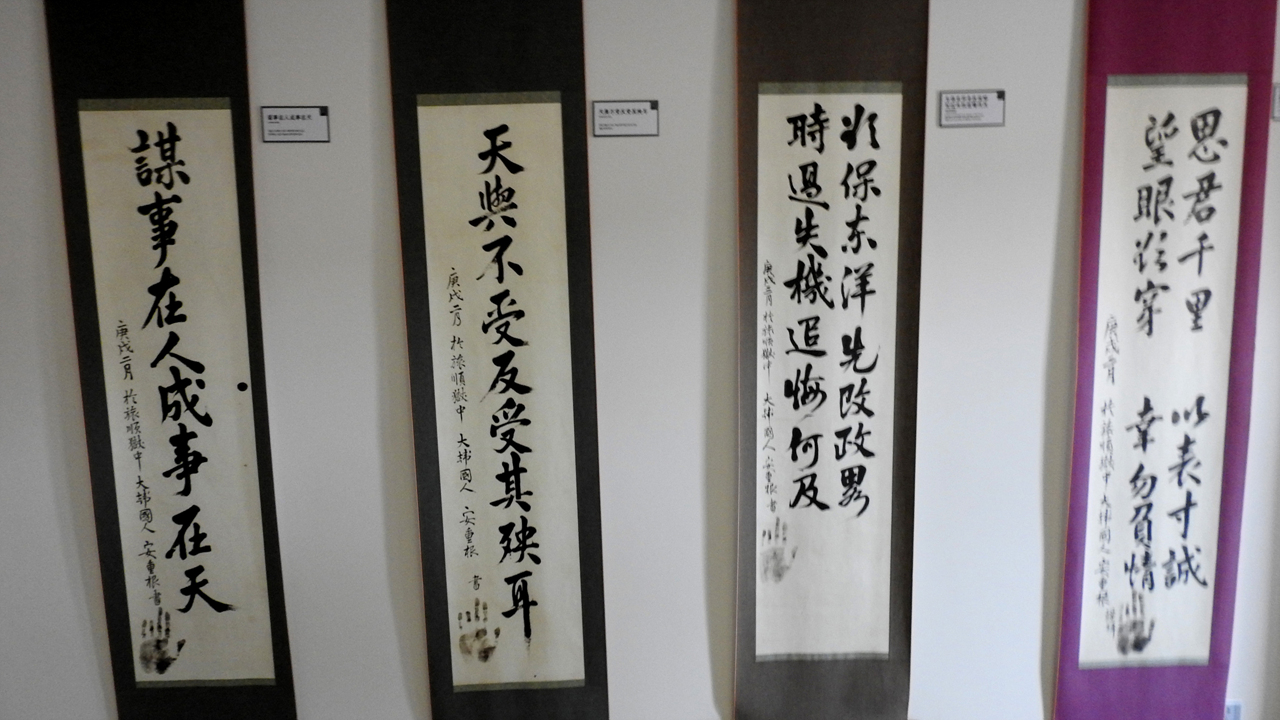 謀事在人成事在天
庚戌二月 於旅順獄中 大韓國人 安重根書
謀事在人成事在天
天與不受反受其殃耳
庚戌二月 於旅順獄中 大韓國人 安重根 書
欲保东洋先改政畧
時過失機追悔何及
庚戌三月 於旅順獄中 大韓國人 安重根 書
思君千里 以表寸誠
望眼欲穿 幸勿負情
庚戌三月 於旅順獄中 大韓國人 安重根 書